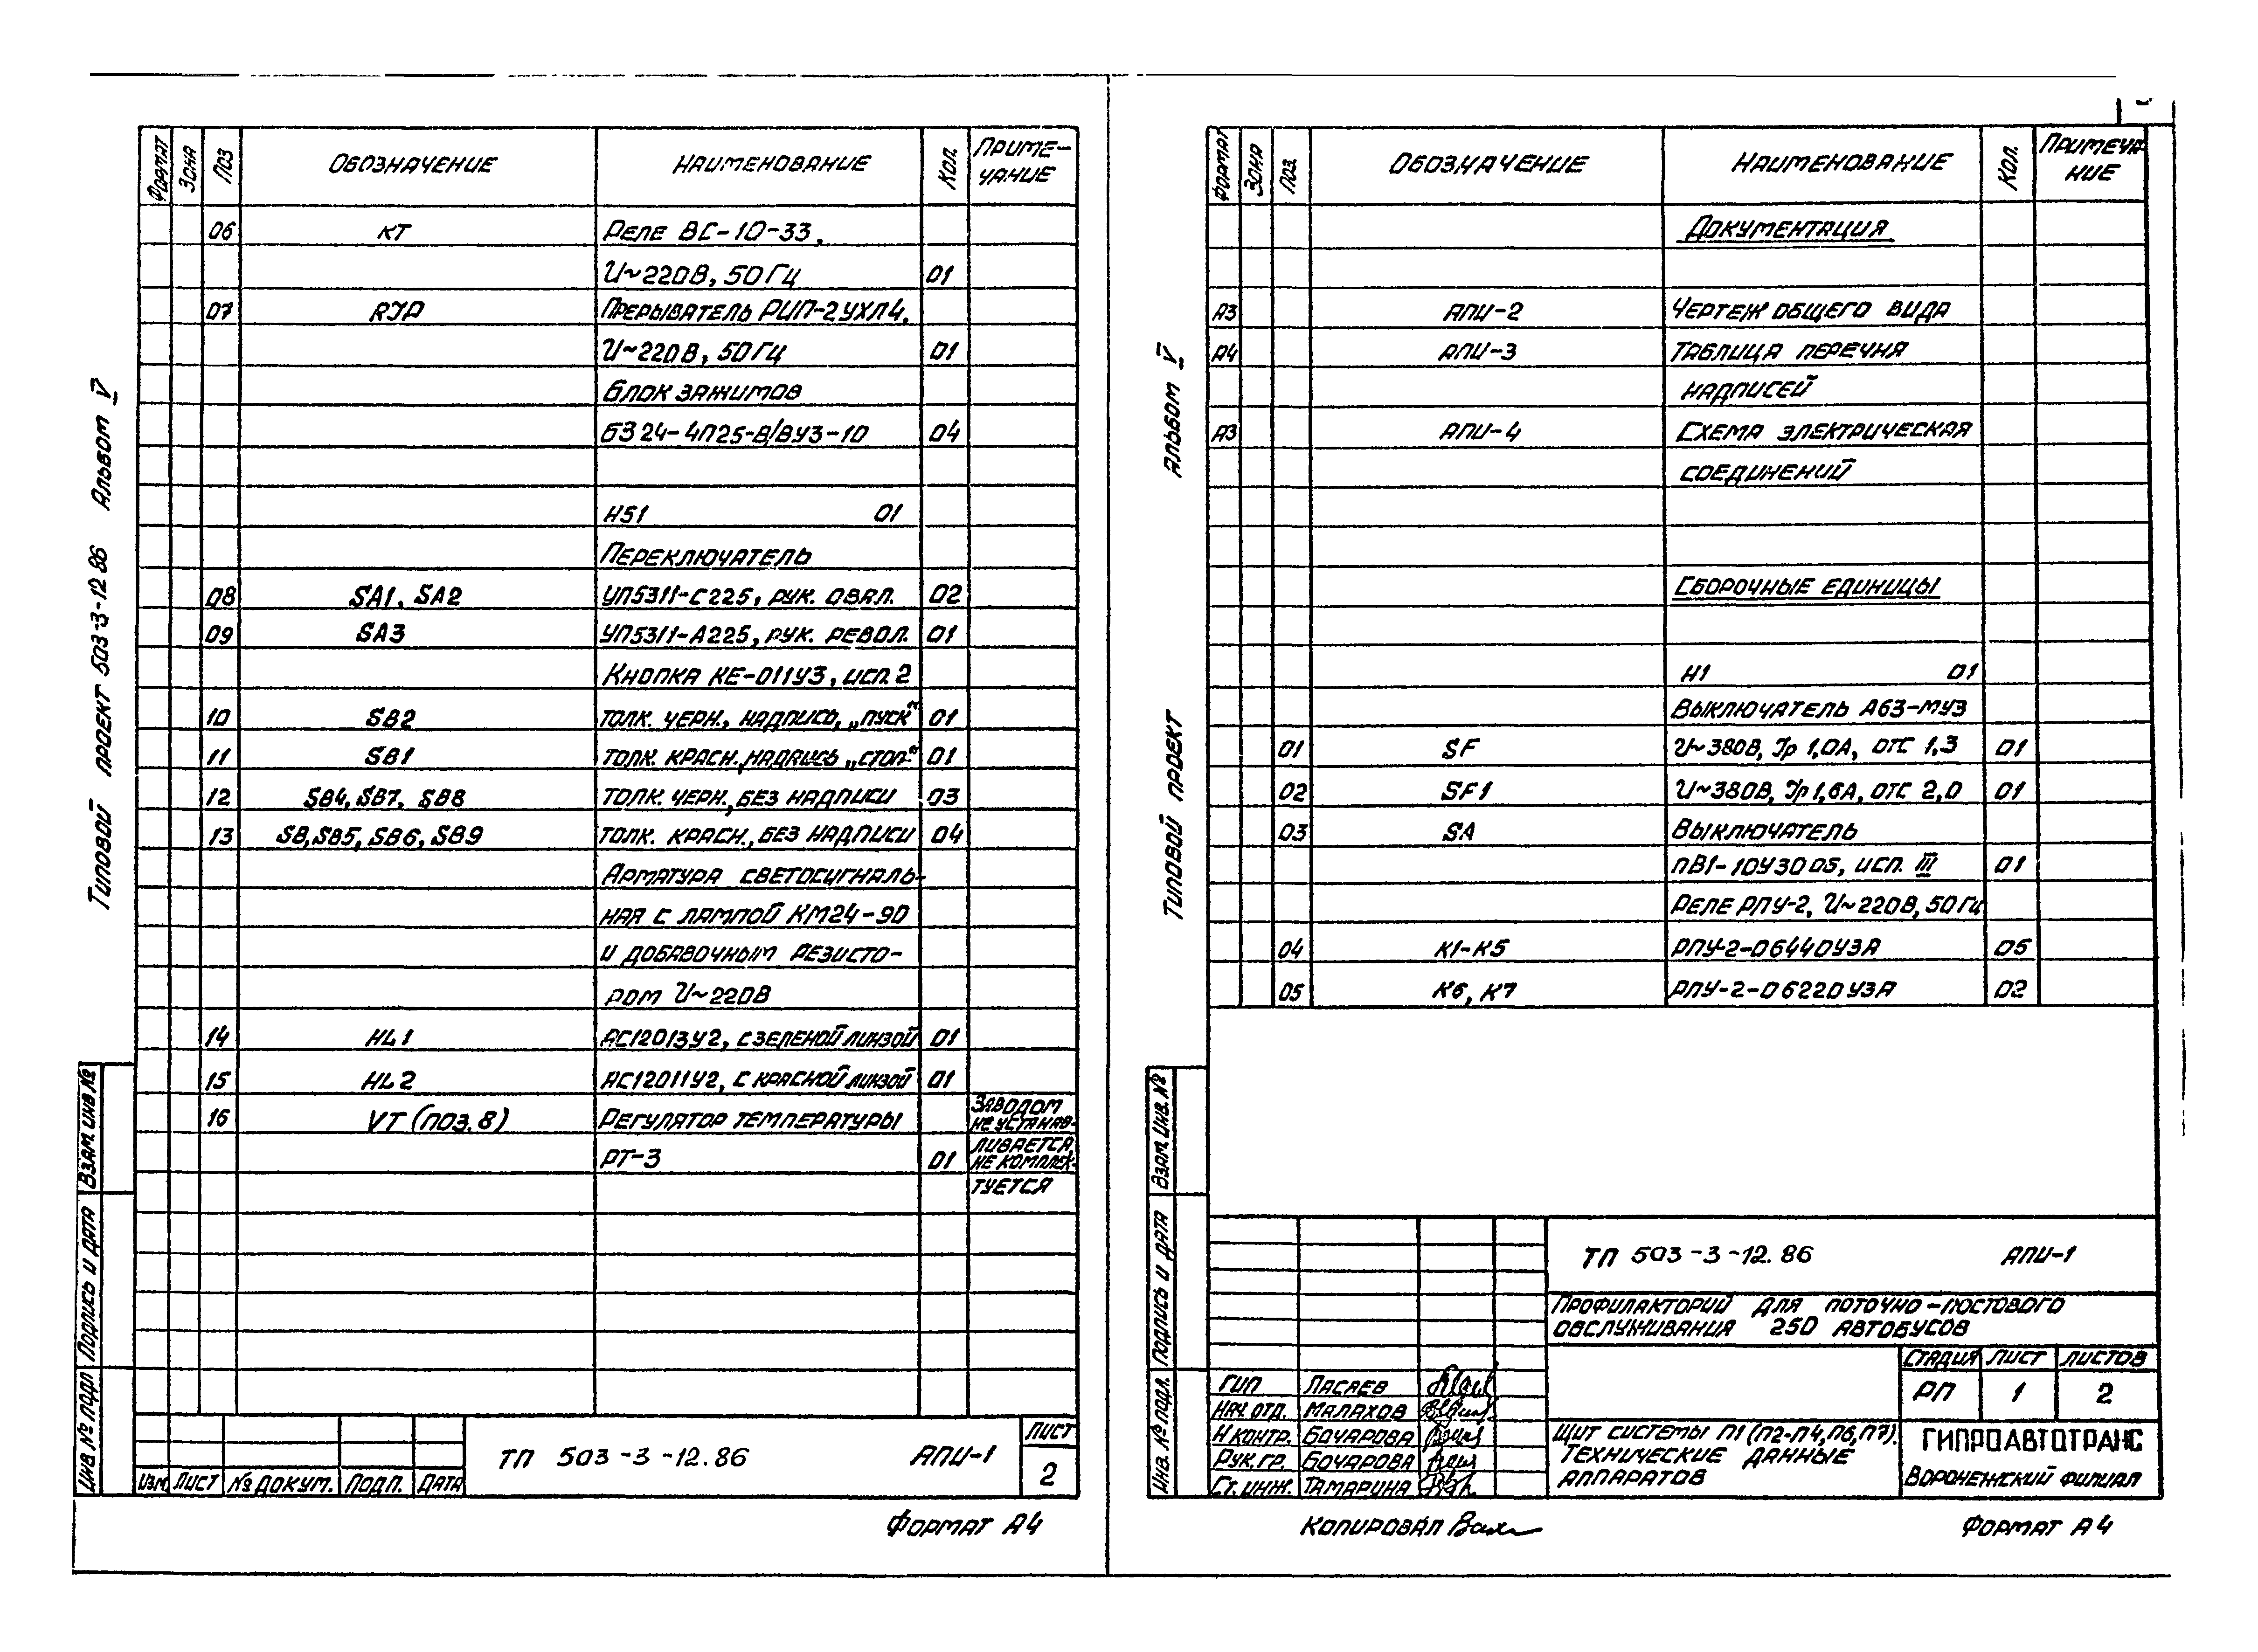 Типовой проект 503-3-12.86 Альбом V
Формат Зона Поз Обозначение Наименование Кол. Приме-
чание
06 КТ Реле ВС-10-33,
U~220В, 50Гц 01
07 Прерыватель РИП-2УХЛ4,
U~220В, 50Гц 01
Блок зажимов
БЗ 24-4П25-В/ВУ3-10 04
Н51 01
Переключатель
08 SA1, SA2 УП5311-С225, рук. овал. 02
09 SA3 УП5311-А225, рук. револ. 01
Кнопка КЕ-011У3, исп. 2
10 SB2 толк. черн., надпись „пуск“ 01
11 SB1 толк. красн., надпись „стоп“ 01
12 SB4, SB7, SB8 толк. черн., без надписи 03
13 SB, SB5, SB6, SB9 толк. красн., без надписи 04
Арматура светосигналь-
ная с лампой КМ24-90
и добавочным резисто-
ром U~220В
14 HL1 АС12013У2, с зеленой линзой 01
15 HL2 АС12011У2, с красной линзой 01
16 VT (поз. 8) Регулятор температуры Заводом
не устанав-
РТ-3 01 ливается,
не комплек-
туется
Инв № подл Подпись и дата Взам. инв. №
Изм Лист № докум. Подп. Дата
ТП 503-3-12.86 АПИ-1
Лист
2
Формат А4
Типовой проект Альбом V
Формат Зона Поз. Обозначение Наименование Кол. Примеча-
ние
Документация
А3 АПИ-2 Чертеж общего вида
А4 АПИ-3 Таблица перечня
надписей
А3 АПИ-4 Схема электрическая
соединений
Сборочные единицы
Н1 01
Выключатель А63-МУ3
01 SF U~380В, Iр 1,0А, отс 1,3 01
02 SF1 U~380В, Iр 1,6А, отс 2,0 01
03 SA Выключатель
ПВ1-10У30 05, исп. III 01
Реле РПУ-2, U~220В, 50Гц
04 К1-К5 РПУ-2-06440У3А 05
05 К6, К7 РПУ-2-06220У3А 02
Инв. № подл. Подпись и дата Взам. инв. №
ТП 503-3-12.86 АПИ-1
Профилакторий для поточно-постового
обслуживания 250 автобусов
Стадия Лист Листов
РП 1 2
ГИП Ласаев
Нач. отд. Малахов
Н контр. Бочарова
Рук. гр. Бочарова
Ст. инж. Тамарина
Щит системы П1 (П2-П4, П6, П7).
Технические данные
аппаратов
ГИПРОАВТОТРАНС
Воронежский филиал
Копировал
Формат А4